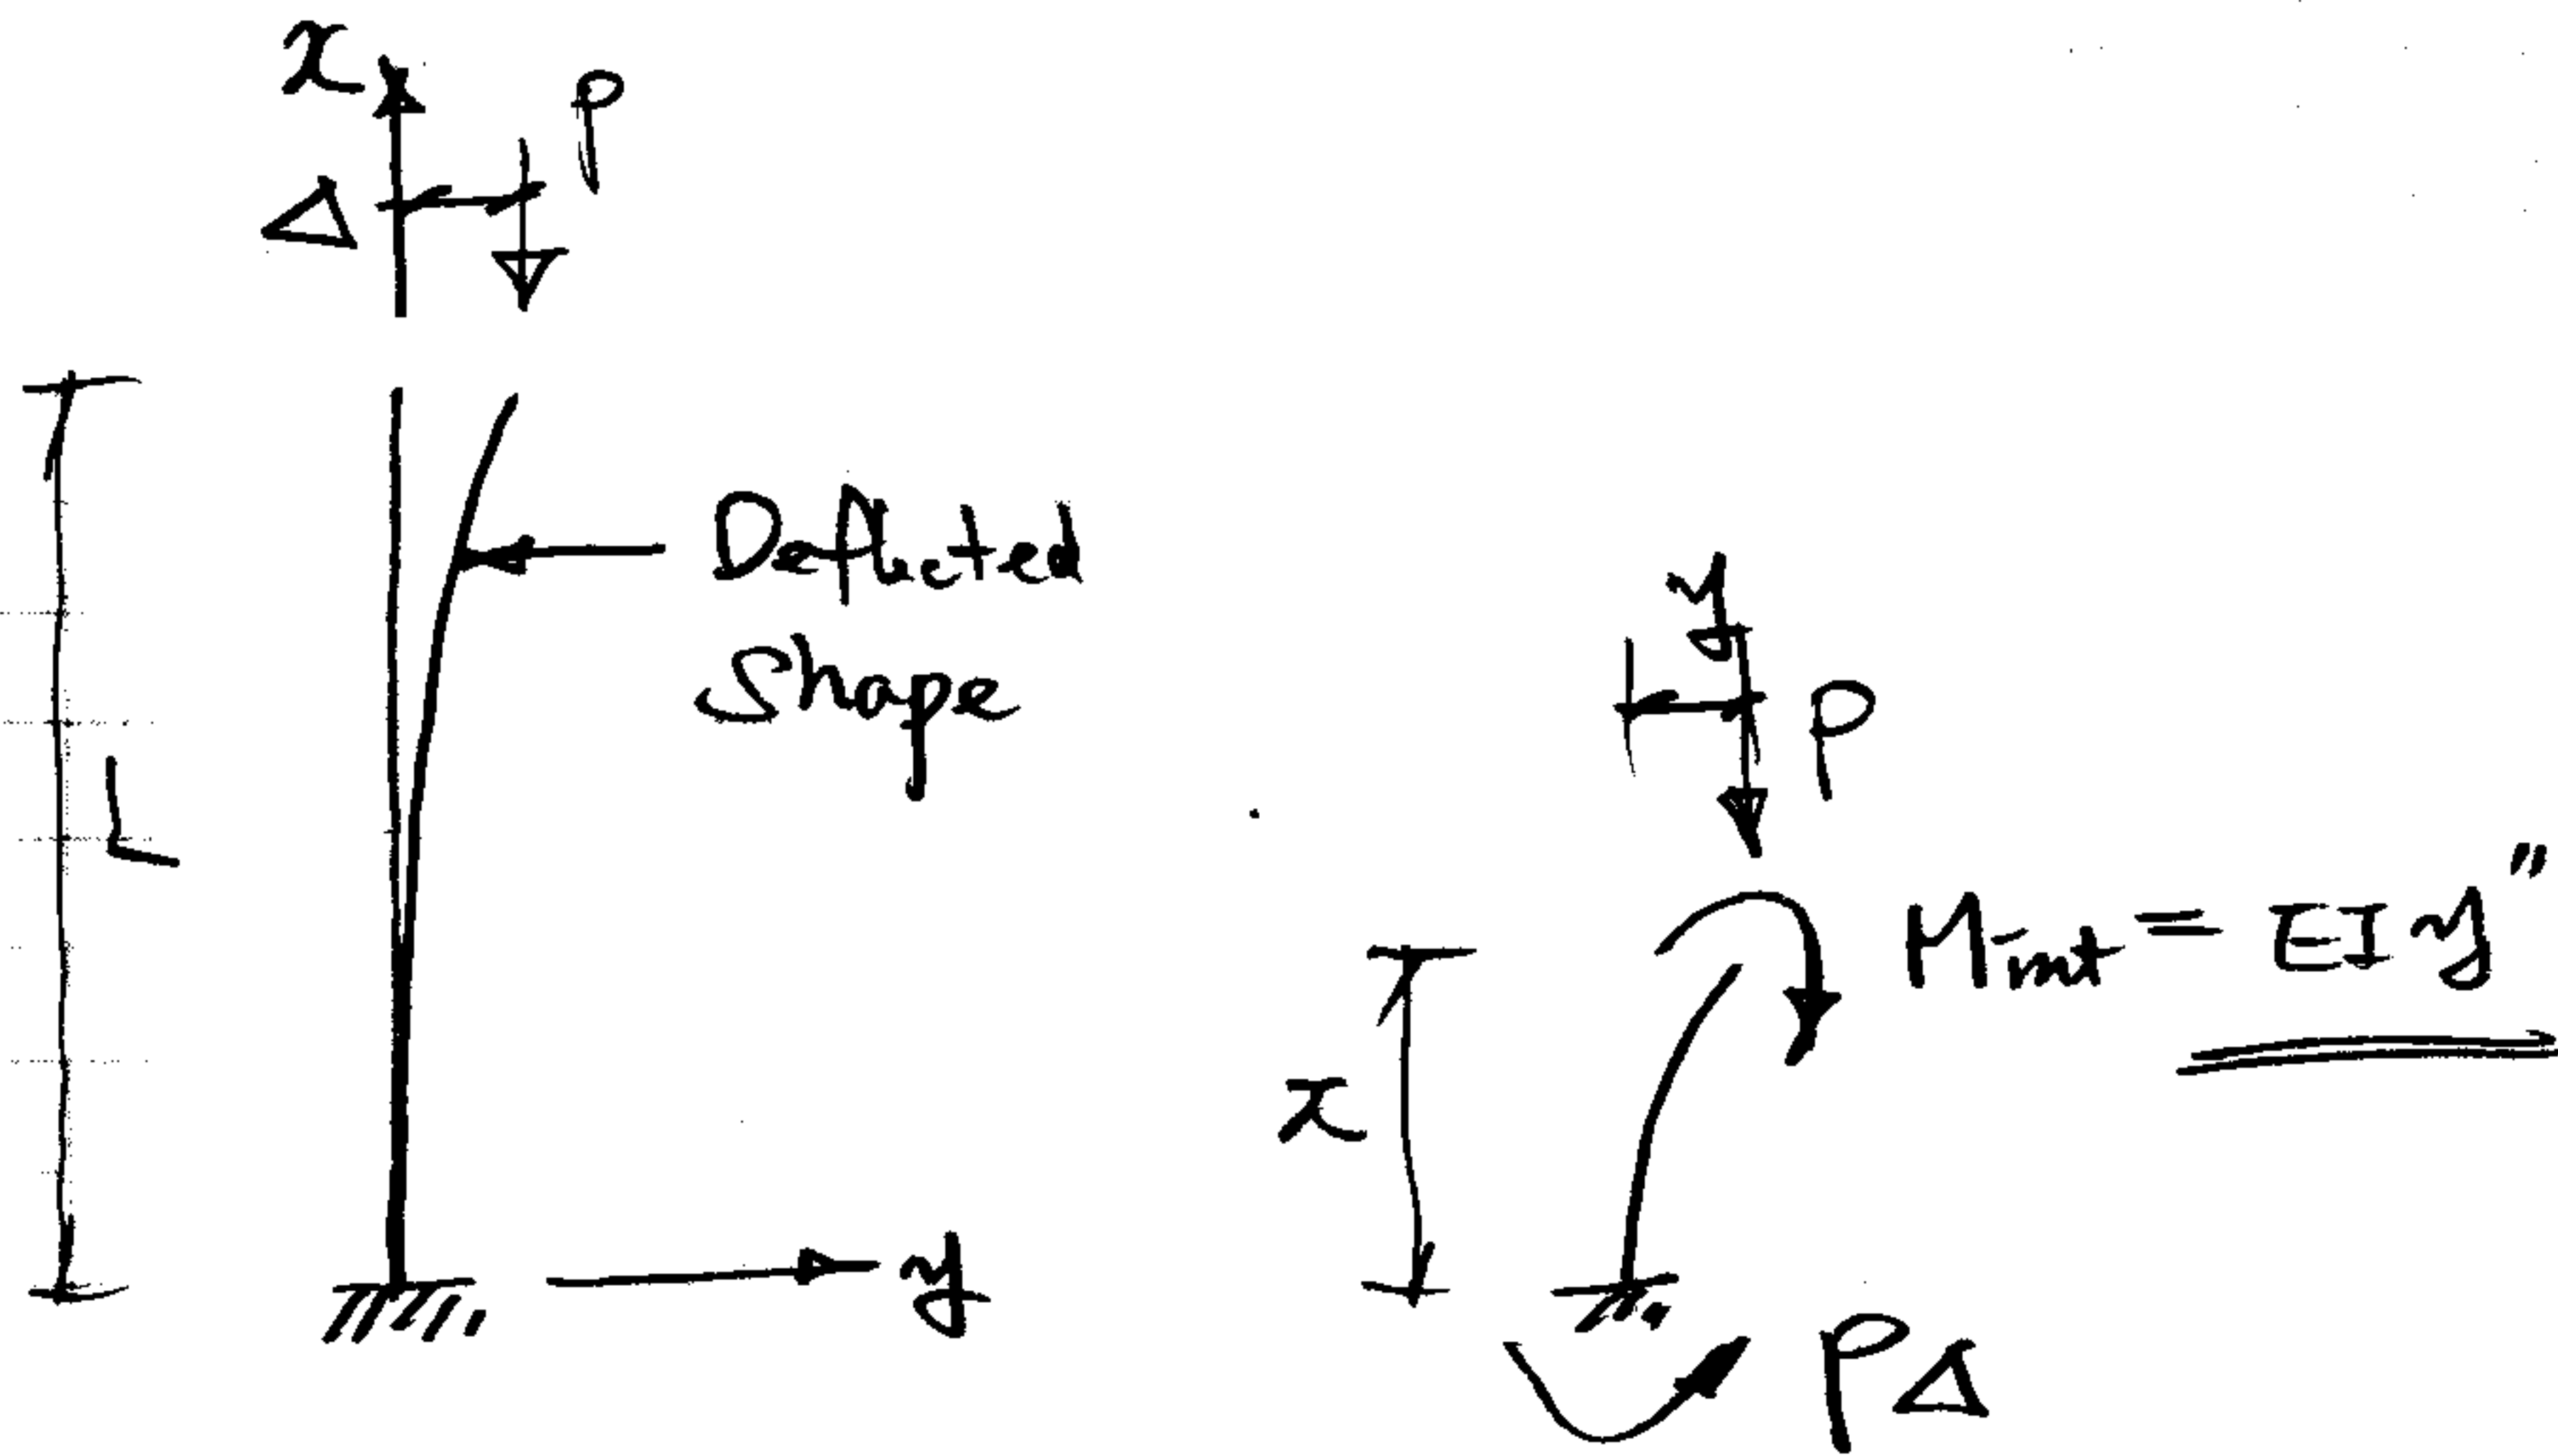 x
Δ
P
Deflected
Shape
L
y
y
P
M_int = EI y"
x
PΔ